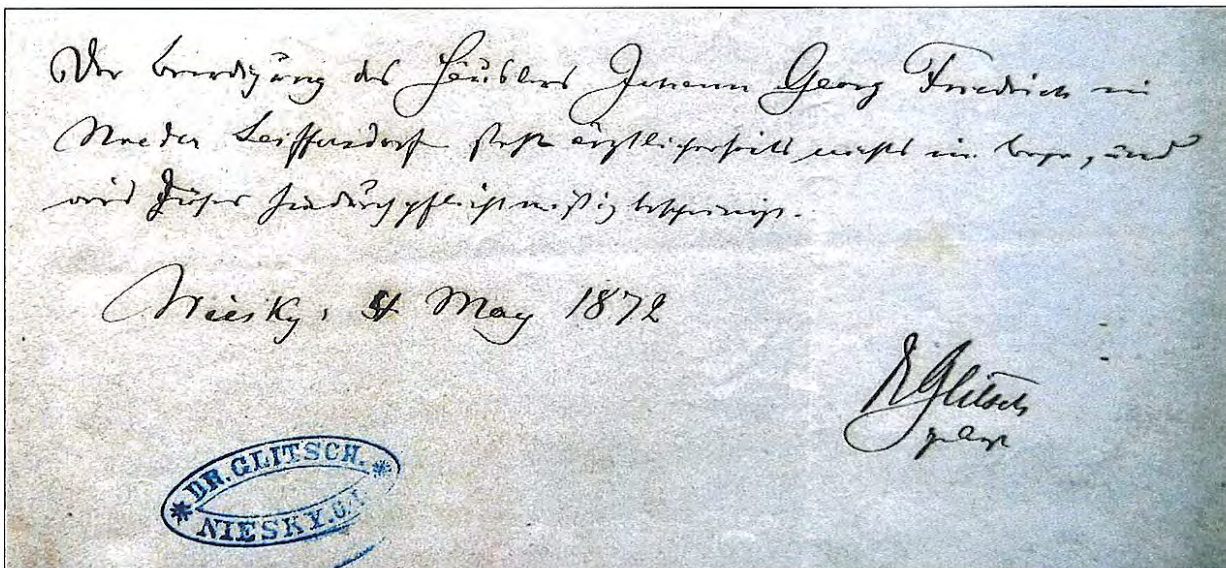 Der Beerdigung des Häuslers Johann Georg Friedrich in
Nieder Seiffersdorf steht ärztlicherseits nichts im Wege, und
wird dieses hierdurch pflichtmäßig bescheinigt.
Niesky, 4 May 1872
Dr Glitsch
DR. GLITSCH.
NIESKY.O.